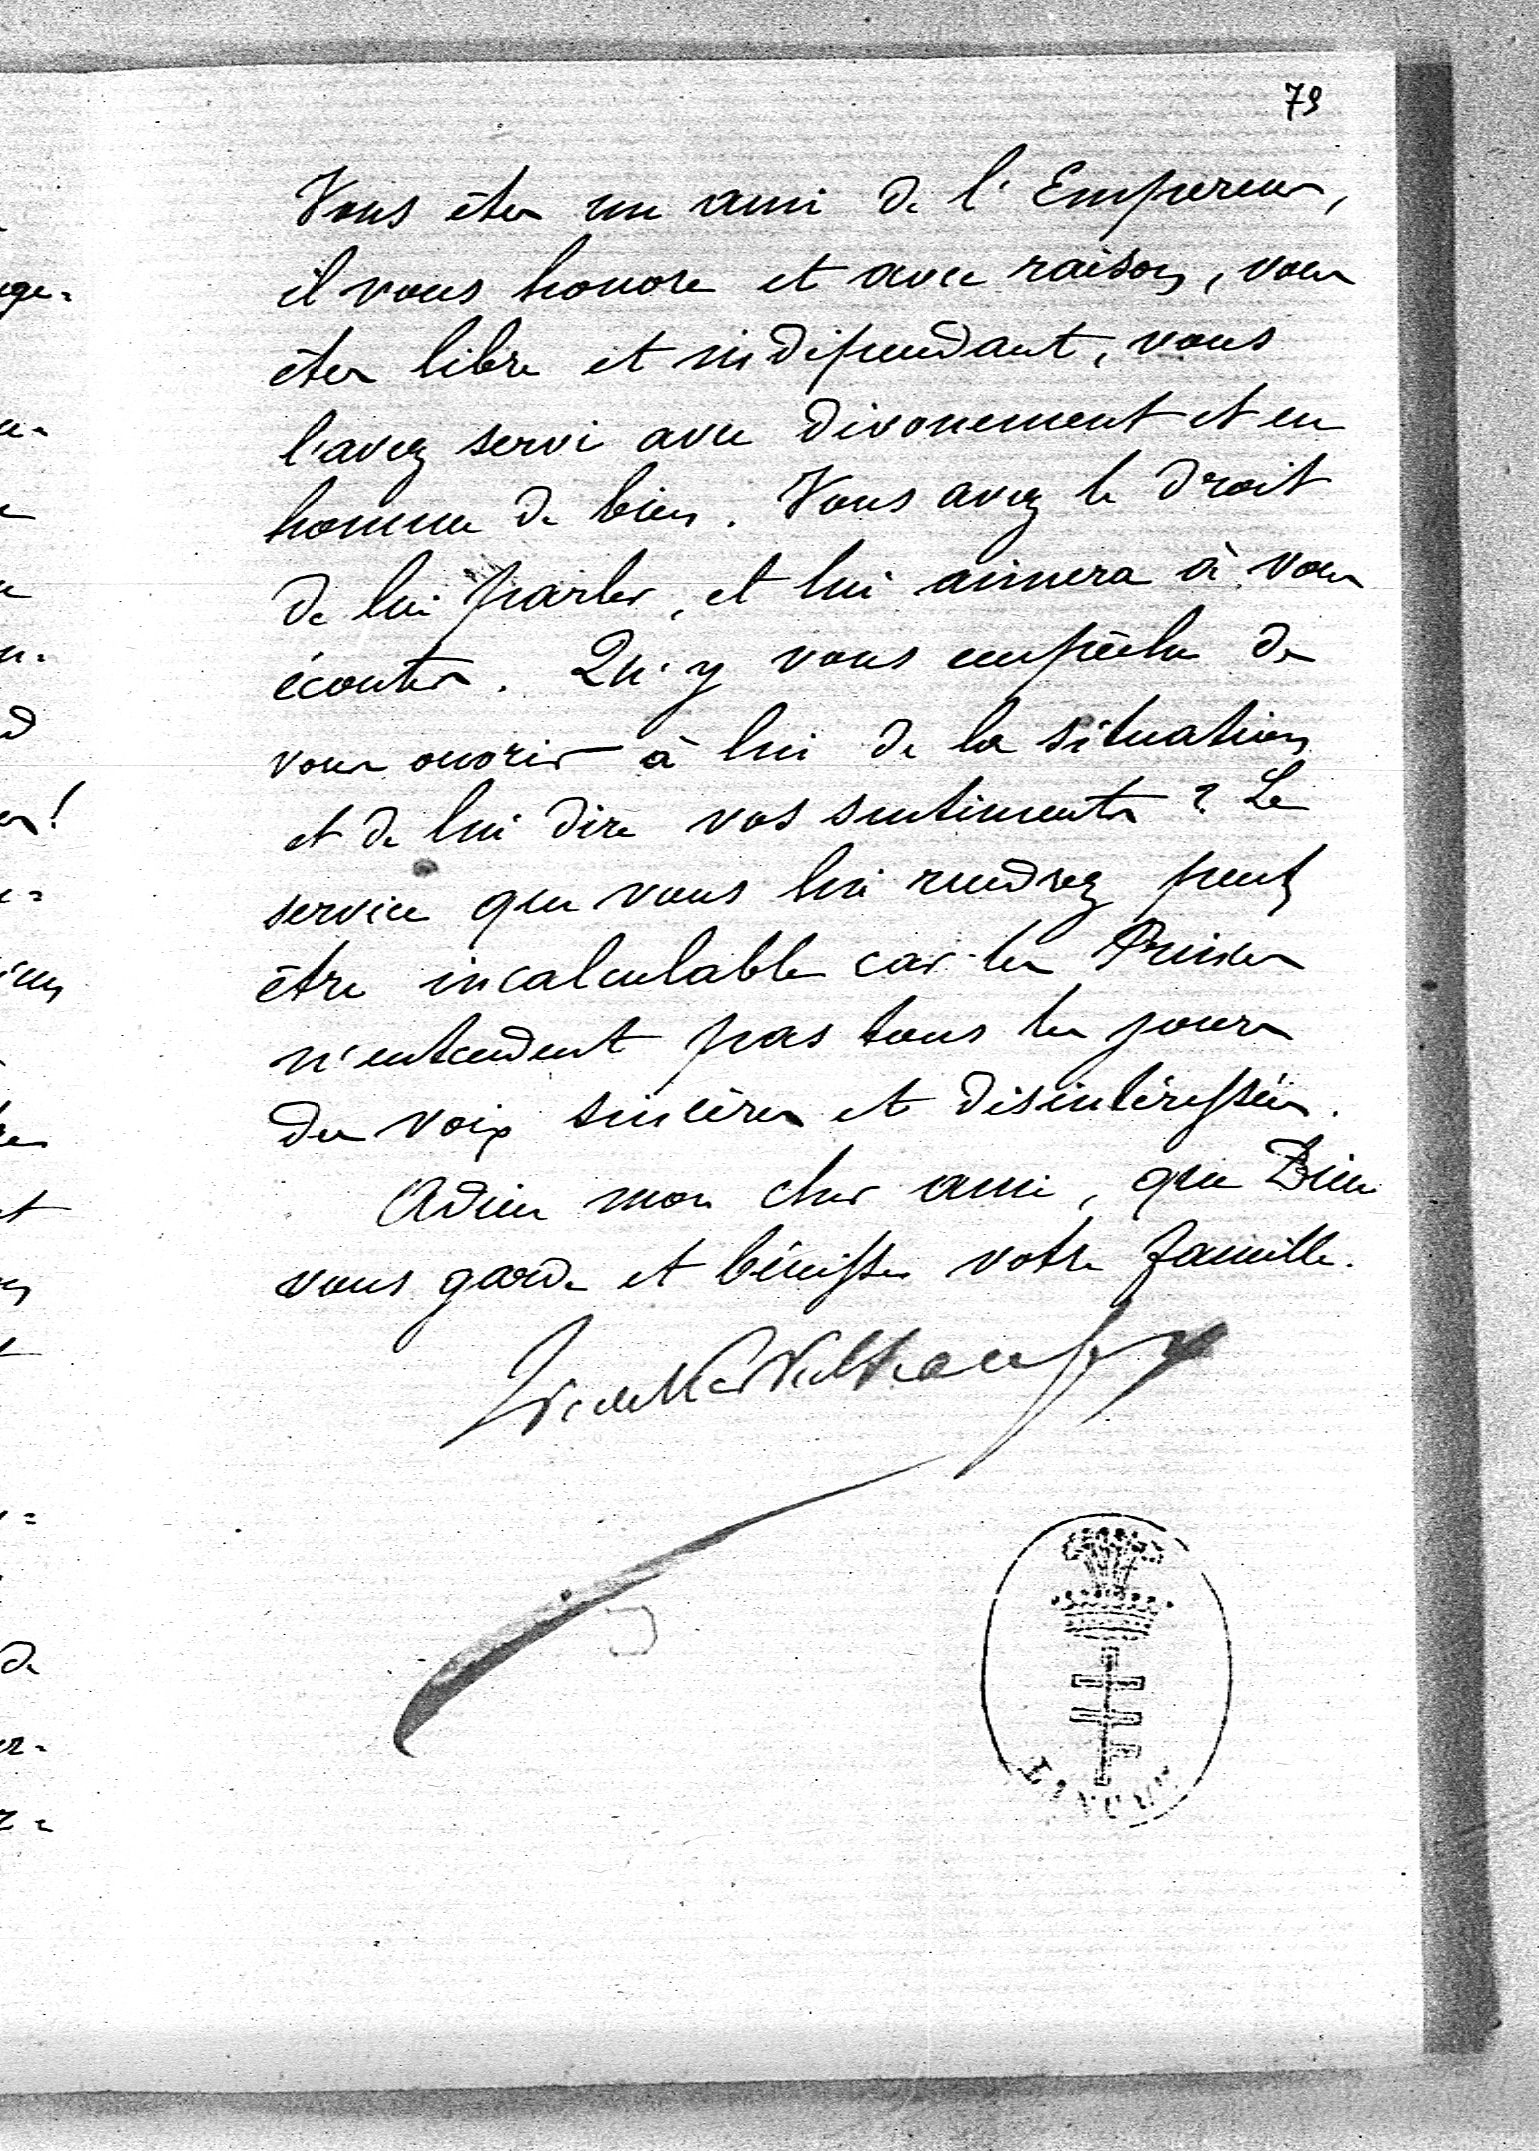 79
Vous êtes un ami de l'Empereur,
il vous honore et avec raison, vous
êtes libre et indépendant, vous
l'avez servi avec dévouement et en
homme de bien. Vous avez le droit
de lui parler, et lui aimera à vous
écouter. Qu'y vous empêche de
vous ouvrir à lui de la situation
et de lui dire vos sentiments? Le
service que vous lui rendrez peut
être incalculable car les Princes
n'entendent pas tous les jours
des voix sincères et désintéressées.
Adieu mon cher ami, que Dieu
vous garde et bénisse votre famille.